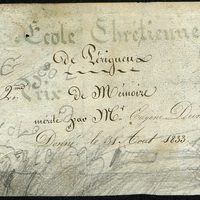 École Chrétienne
de Périgueux
2me Prix de Mémoire
mérité par Mr. Eugène
Donné le 31 Aout 1833